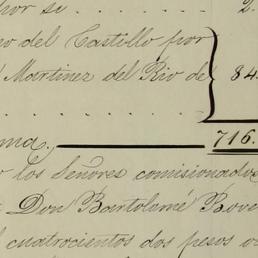 por si . . . . . . . . 2.
no del Castillo por
Martinez del Rio de 84
. . . . . . . . . .
ma, 716.
r los Señores comisionados
Don Bartolomé Rove
l cuatrocientos dos pesos oc